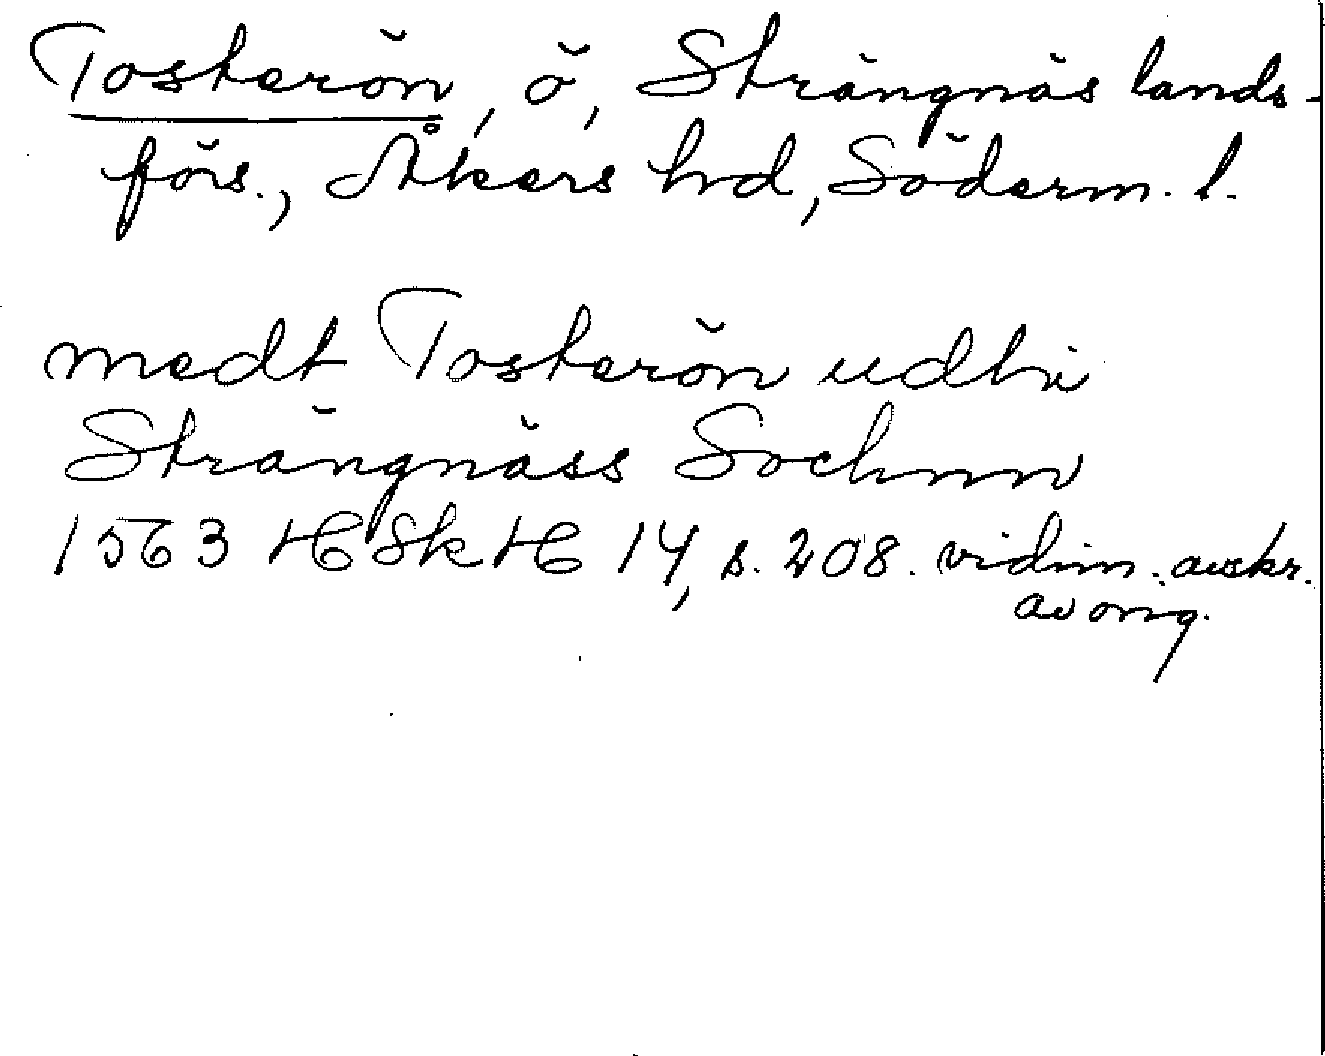 Tosterön, ö, Strängnäs lands-
förs., Åkers hrd, Söderm. l.
medt Tosterön udhi
Strängnäss Sochnn
1563 HSkH 14, s. 208. vidim. avskr.
av orig.